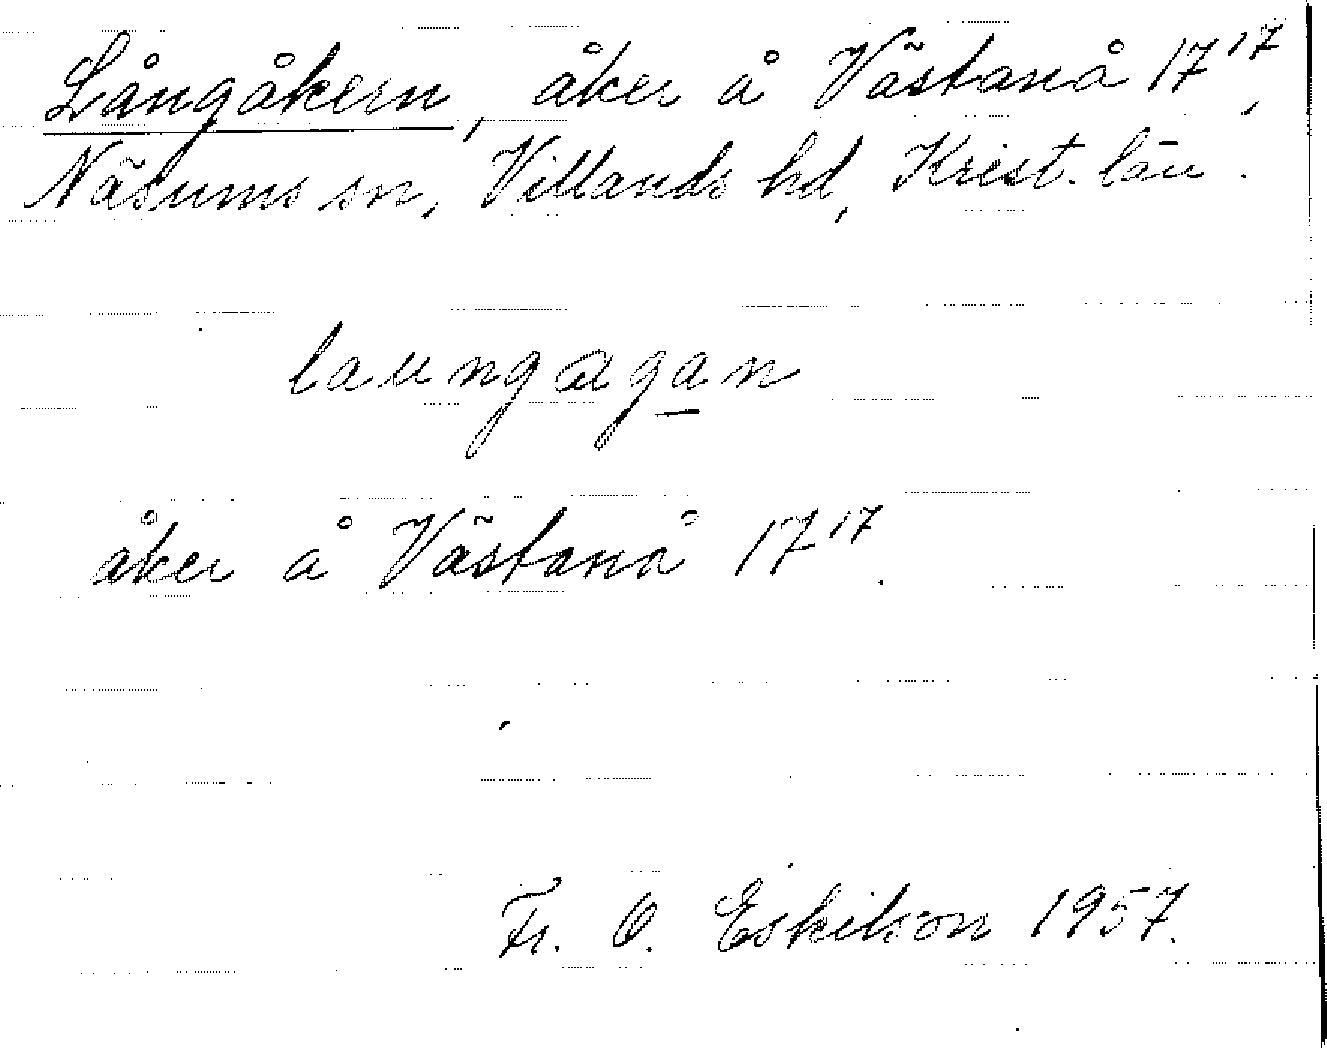 Långåkern, åker å Västanå 17¹⁷,
Näsums sn, Villands hd, Krist. län.
laungagan
åker å Västanå 17¹⁷.
Fr. O. Eskilson 1957.